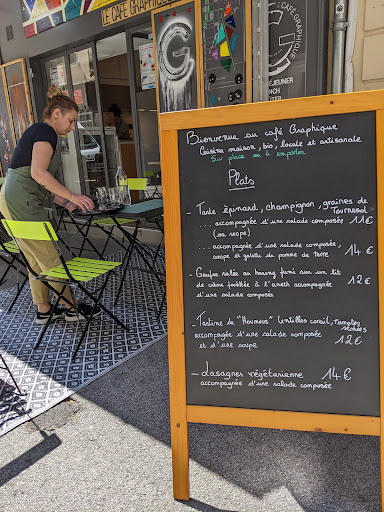 LE CAFÉ GRAPHIQUE
LE CAFÉ GRAPHI
CAFÉ GRAPHIQUE
DÉJEUNER
Bienvenue au café Graphique
Cuisine maison, bio, locale et artisanale
Sur place ou à emporter
Plats
- Tarte épinard, champignon, graines de
Tournesol
... accompagnée d'une salade composée 11€
(ou soupe)
... accompagnée d'une salade composée,
soupe et galette de pomme de Terre 14 €
- Gaufre salée au hareng fumé sur un lit
de crème fouettée à l'aneth accompagnée 12€
d'une salade composée
- Tartine de "Houmous" lentilles corail, Tomates
accompagnée d'une salade composée
et d'une soupe 12€
- Lasagnes végétarienne 14€
accompagnée d'une salade composée